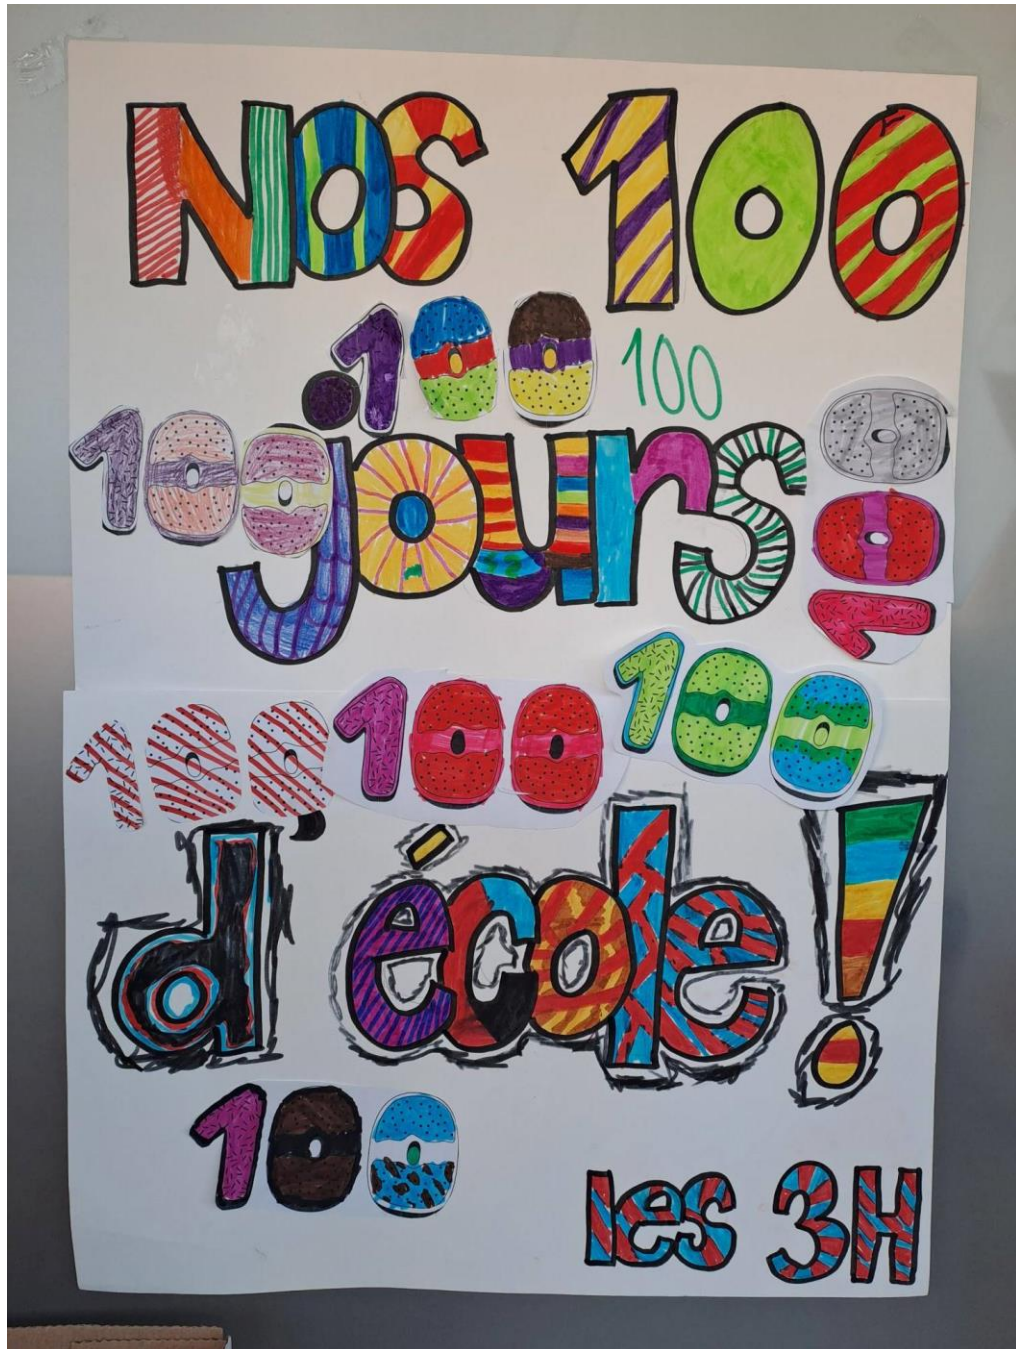 Nos 100
100 100
100
jours
100
100 100 100
d'école!
100
les 3H